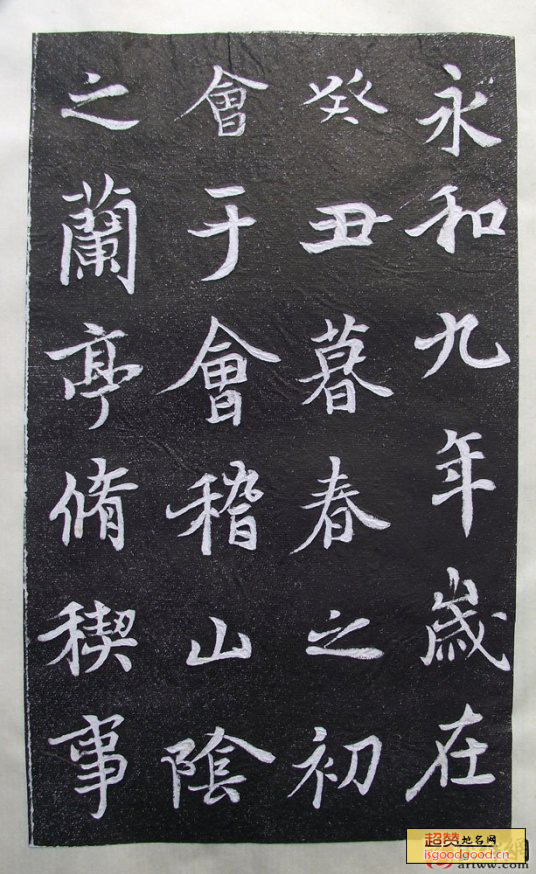 永和九年歲在
癸丑暮春之初
會于會稽山陰
之蘭亭脩稧事
超赞地名网
isgoodgood.cn
artww.com